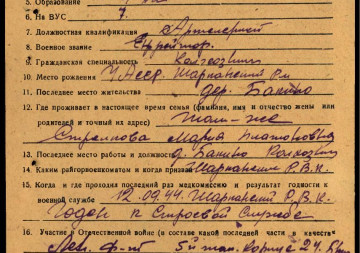 5. Образование
6. На ВУС 7.
7. Должностная квалификация Артилерист
8. Военное звание Ефрейтор.
9. Гражданская специальность Колхозник
10. Место рождения УАССР. Шарканский Р-н
11. Последнее место жительства дер. Бакино
12. Где проживает в настоящее время семья (фамилия, имя и отчество жены или
родителей и точный их адрес) Там-же
Стрелкова Мария
13. Последнее место работы и должность д. Бакино Колхозник
14. Каким райгорвоенкоматом и когда призван Шарканским Р.В.К.
15. Когда и где проходил последний раз медкомиссию и результат годности к
военной службе 12.09.44. Шарканский Р.В.К.
Годен к Строевой Службе
16. Участие в Отечественной войне (в составе какой последней части и в качестве
Лен. ф-т 5й тан. корпус 24.